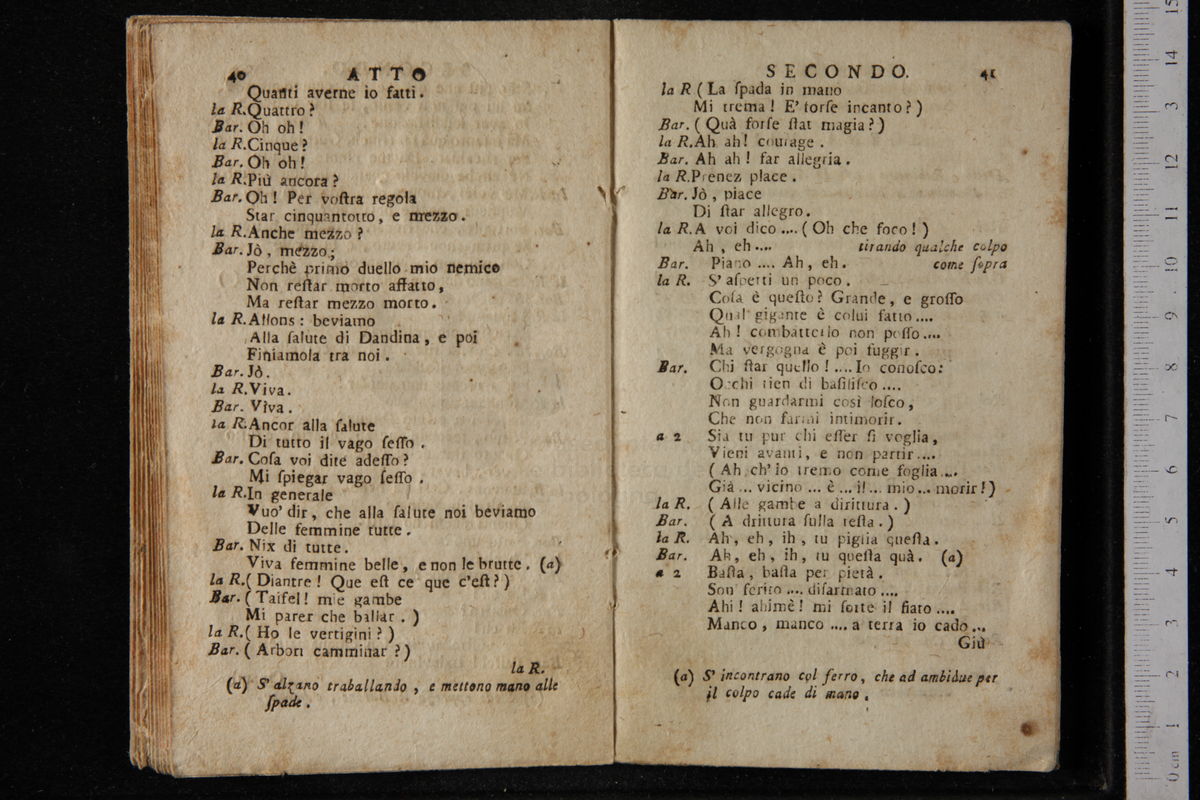 40 ATTO
Quanti averne io fatti.
la R.Quattro?
Bar. Oh oh!
la R.Cinque?
Bar. Oh oh!
la R.Più ancora?
Bar. Oh! Per voſtra regola
Star cinquantotto, e mezzo.
la R.Anche mezzo?
Bar. Jò, mezzo;
Perchè primo duello mio nemico
Non reſtar morto affatto,
Ma reſtar mezzo morto.
la R.Allons: beviamo
Alla ſalute di Dandina, e poi
Finiamola tra noi.
Bar. Jò.
la R.Viva.
Bar. Viva.
la R.Ancor alla ſalute
Di tutto il vago ſeſſo.
Bar. Coſa voi dite adeſſo?
Mi ſpiegar vago ſeſſo.
la R.In generale
Vuo' dir, che alla ſalute noi beviamo
Delle femmine tutte.
Bar. Nix di tutte.
Viva femmine belle, e non le brutte. (a)
la R.( Diantre! Que eſt ce que c'eſt? )
Bar. ( Taifel! mie gambe
Mi parer che ballar. )
la R.( Ho le vertigini? )
Bar. ( Arbori camminar? )
la R.
(a) S' alzano traballando, e mettono mano alle
ſpade.
SECONDO. 41
la R ( La ſpada in mano
Mi trema! E' forſe incanto? )
Bar. ( Quà forſe ſtat magia? )
la R.Ah ah! courage.
Bar. Ah ah! far allegria.
la R.Prenez place.
Bar. Jò, piace
Di ſtar allegro.
la R.A voi dico .... ( Oh che foco! )
Ah, eh .... tirando qualche colpo
Bar. Piano .... Ah, eh. come ſopra
la R. S' aſpetti un poco.
Coſa è queſto? Grande, e groſſo
Qual gigante è colui fatto ....
Ah! combatterlo non poſſo ....
Ma vergogna è poi fuggir.
Bar. Chi ſtar quello! .... Io conoſco:
Occhi tien di baſiliſco ....
Non guardarmi così loſco,
Che non farmi intimorir.
a 2 Sia tu pur chi eſſer ſi voglia,
Vieni avanti, e non partir ....
( Ah ch' io tremo come foglia ...
Già ... vicino ... è ... il ... mio ... morir! )
la R. ( Alle gambe a dirittura. )
Bar. ( A drittura ſulla teſta. )
la R. Ah, eh, ih, tu piglia queſta.
Bar. Ah, eh, ih, tu queſta quà. (a)
a 2 Baſta, baſta per pietà.
Son ferito .... diſarmato ....
Ahi! ahimè! mi forte il fiato ....
Manco, manco .... a terra io cado ...
Giù
(a) S' incontrano col ferro, che ad ambidue per
il colpo cade di mano.